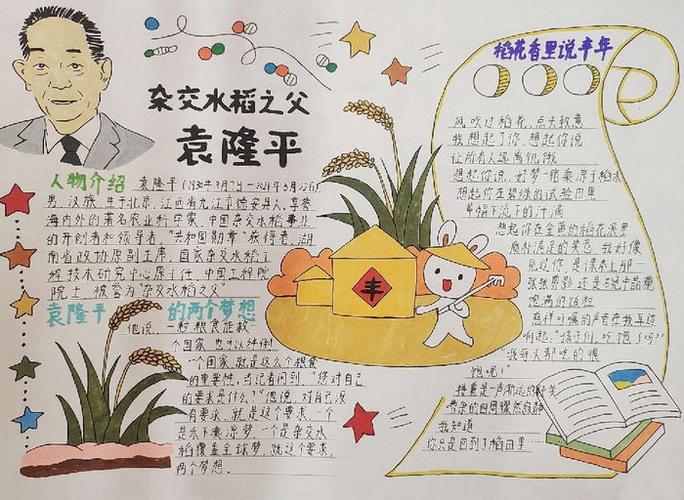 杂交水稻之父
袁隆平
人物介绍 袁隆平(1930年9月7日—2021年5月22日)
男，汉族，生于北京，江西省九江市德安县人，享誉
海内外的著名农业科学家，中国杂交水稻事业
的开创者和领导者，“共和国勋章”获得者，湖
南省政协原副主席，国家杂交水稻工
程技术研究中心原主任，中国工程院
院士，被誉为“杂交水稻之父”
袁隆平的两个梦想
他说，一粒粮食能救一
个国家，也可以绊倒
一个国家，就是这么个粮食
的重要性，当记者问到，“您对自己
的要求是什么？”他说，对自己没
有要求，就是这个要求，一个
是禾下乘凉梦，一个是杂交水
稻覆盖全球梦，就这个要求，
两个梦想。
丰
稻花香里说丰年
风吹过稻花，点头致意
我想起了你，想起你说
让所有人远离饥饿
想起你说，好梦
想起你在碧绿的试验田里
下的汗滴
想起你在金黄的稻浪里
我好像
见过你，是课本上那
张张剪影还是
饱满的
慈祥叮嘱的声音在我耳边
响起，“孩子们，吃饱了吗？”
饱饱！”
我知道
你只是回到了稻田里……